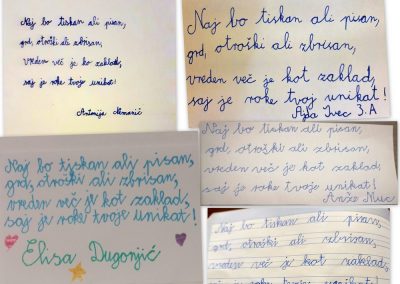 Naj bo tiskan ali pisan,
grd, otroški ali zbrisan,
vreden več je ko zaklad,
saj je roke tvoj unikat!
Antonija
Naj bo tiskan ali pisan,
grd, otroški ali zbrisan,
vreden več je kot zaklad,
saj je roke tvoj unikat!
Ajda Ivec 3.A
Naj bo tiskan ali pisan,
grd, otroški ali zbrisan,
vreden več je kot zaklad,
saj je roke tvoje unikat!
Elisa Dugonjić
Naj bo tiskan ali pisan,
grd, otroški ali zbrisan,
vreden več je kot zaklad,
saj je roke tvoje unikat!
Anže
Naj bo tiskan ali pisan,
grd, otroški ali
vreden več je kot zaklad,
saj je roke tvoje unikat!